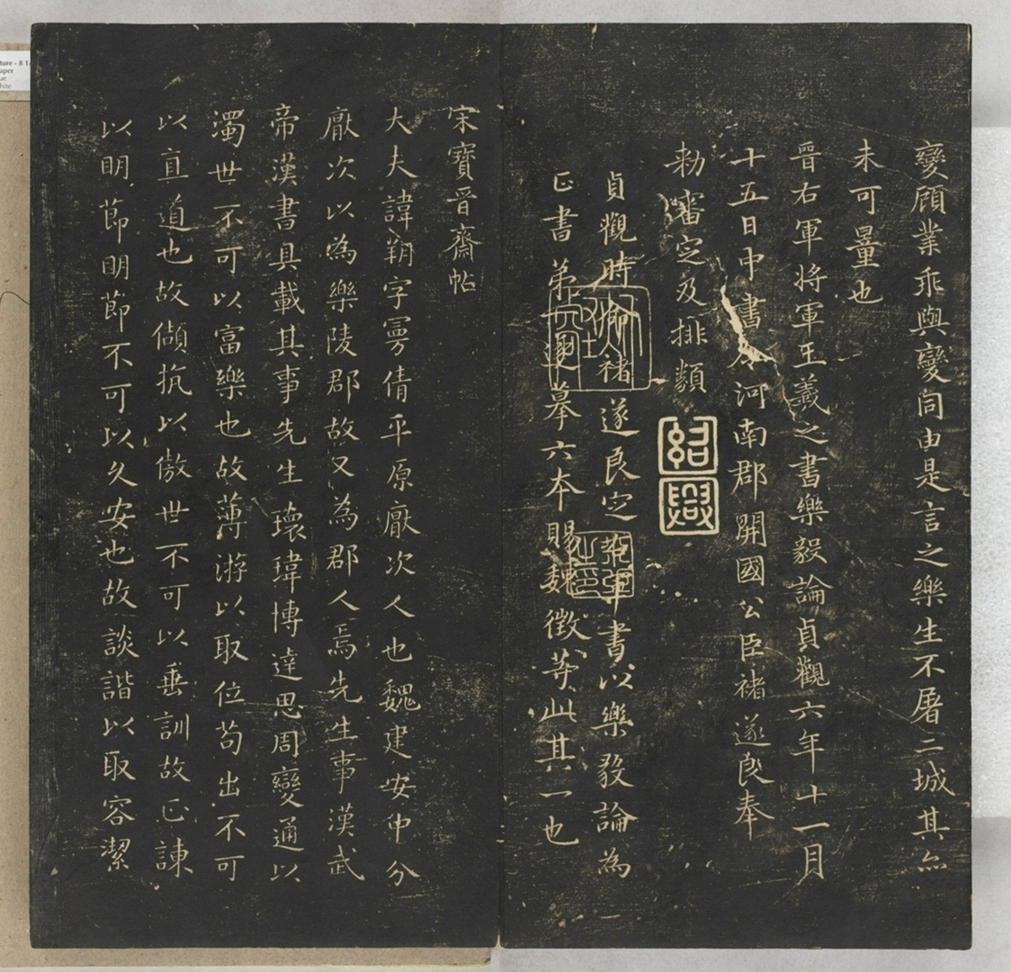 變顧業乖與變同由是言之樂生不屠二城其亦
未可量也
晉右軍將軍王羲之書樂毅論貞觀六年十一月
十五日中書令河南郡開國公臣褚遂良奉
勑審定及排類
紹興
貞觀時命褚遂良定右軍書以樂毅論為
正書第一遂摹六本賜魏徵等此其一也
宋寶晉齋帖
大夫諱朔字曼倩平原厭次人也魏建安中分
厭次以為樂陵郡故又為郡人焉先生事漢武
帝漢書具載其事先生瓌瑋博達思周變通以
濁世不可以富樂也故薄游以取位苟出不可
以直道也故傾抗以傲世傲世不可以垂訓故正諫
以明節明節不可以久安也故談諧以取容潔
ture - 8 1/